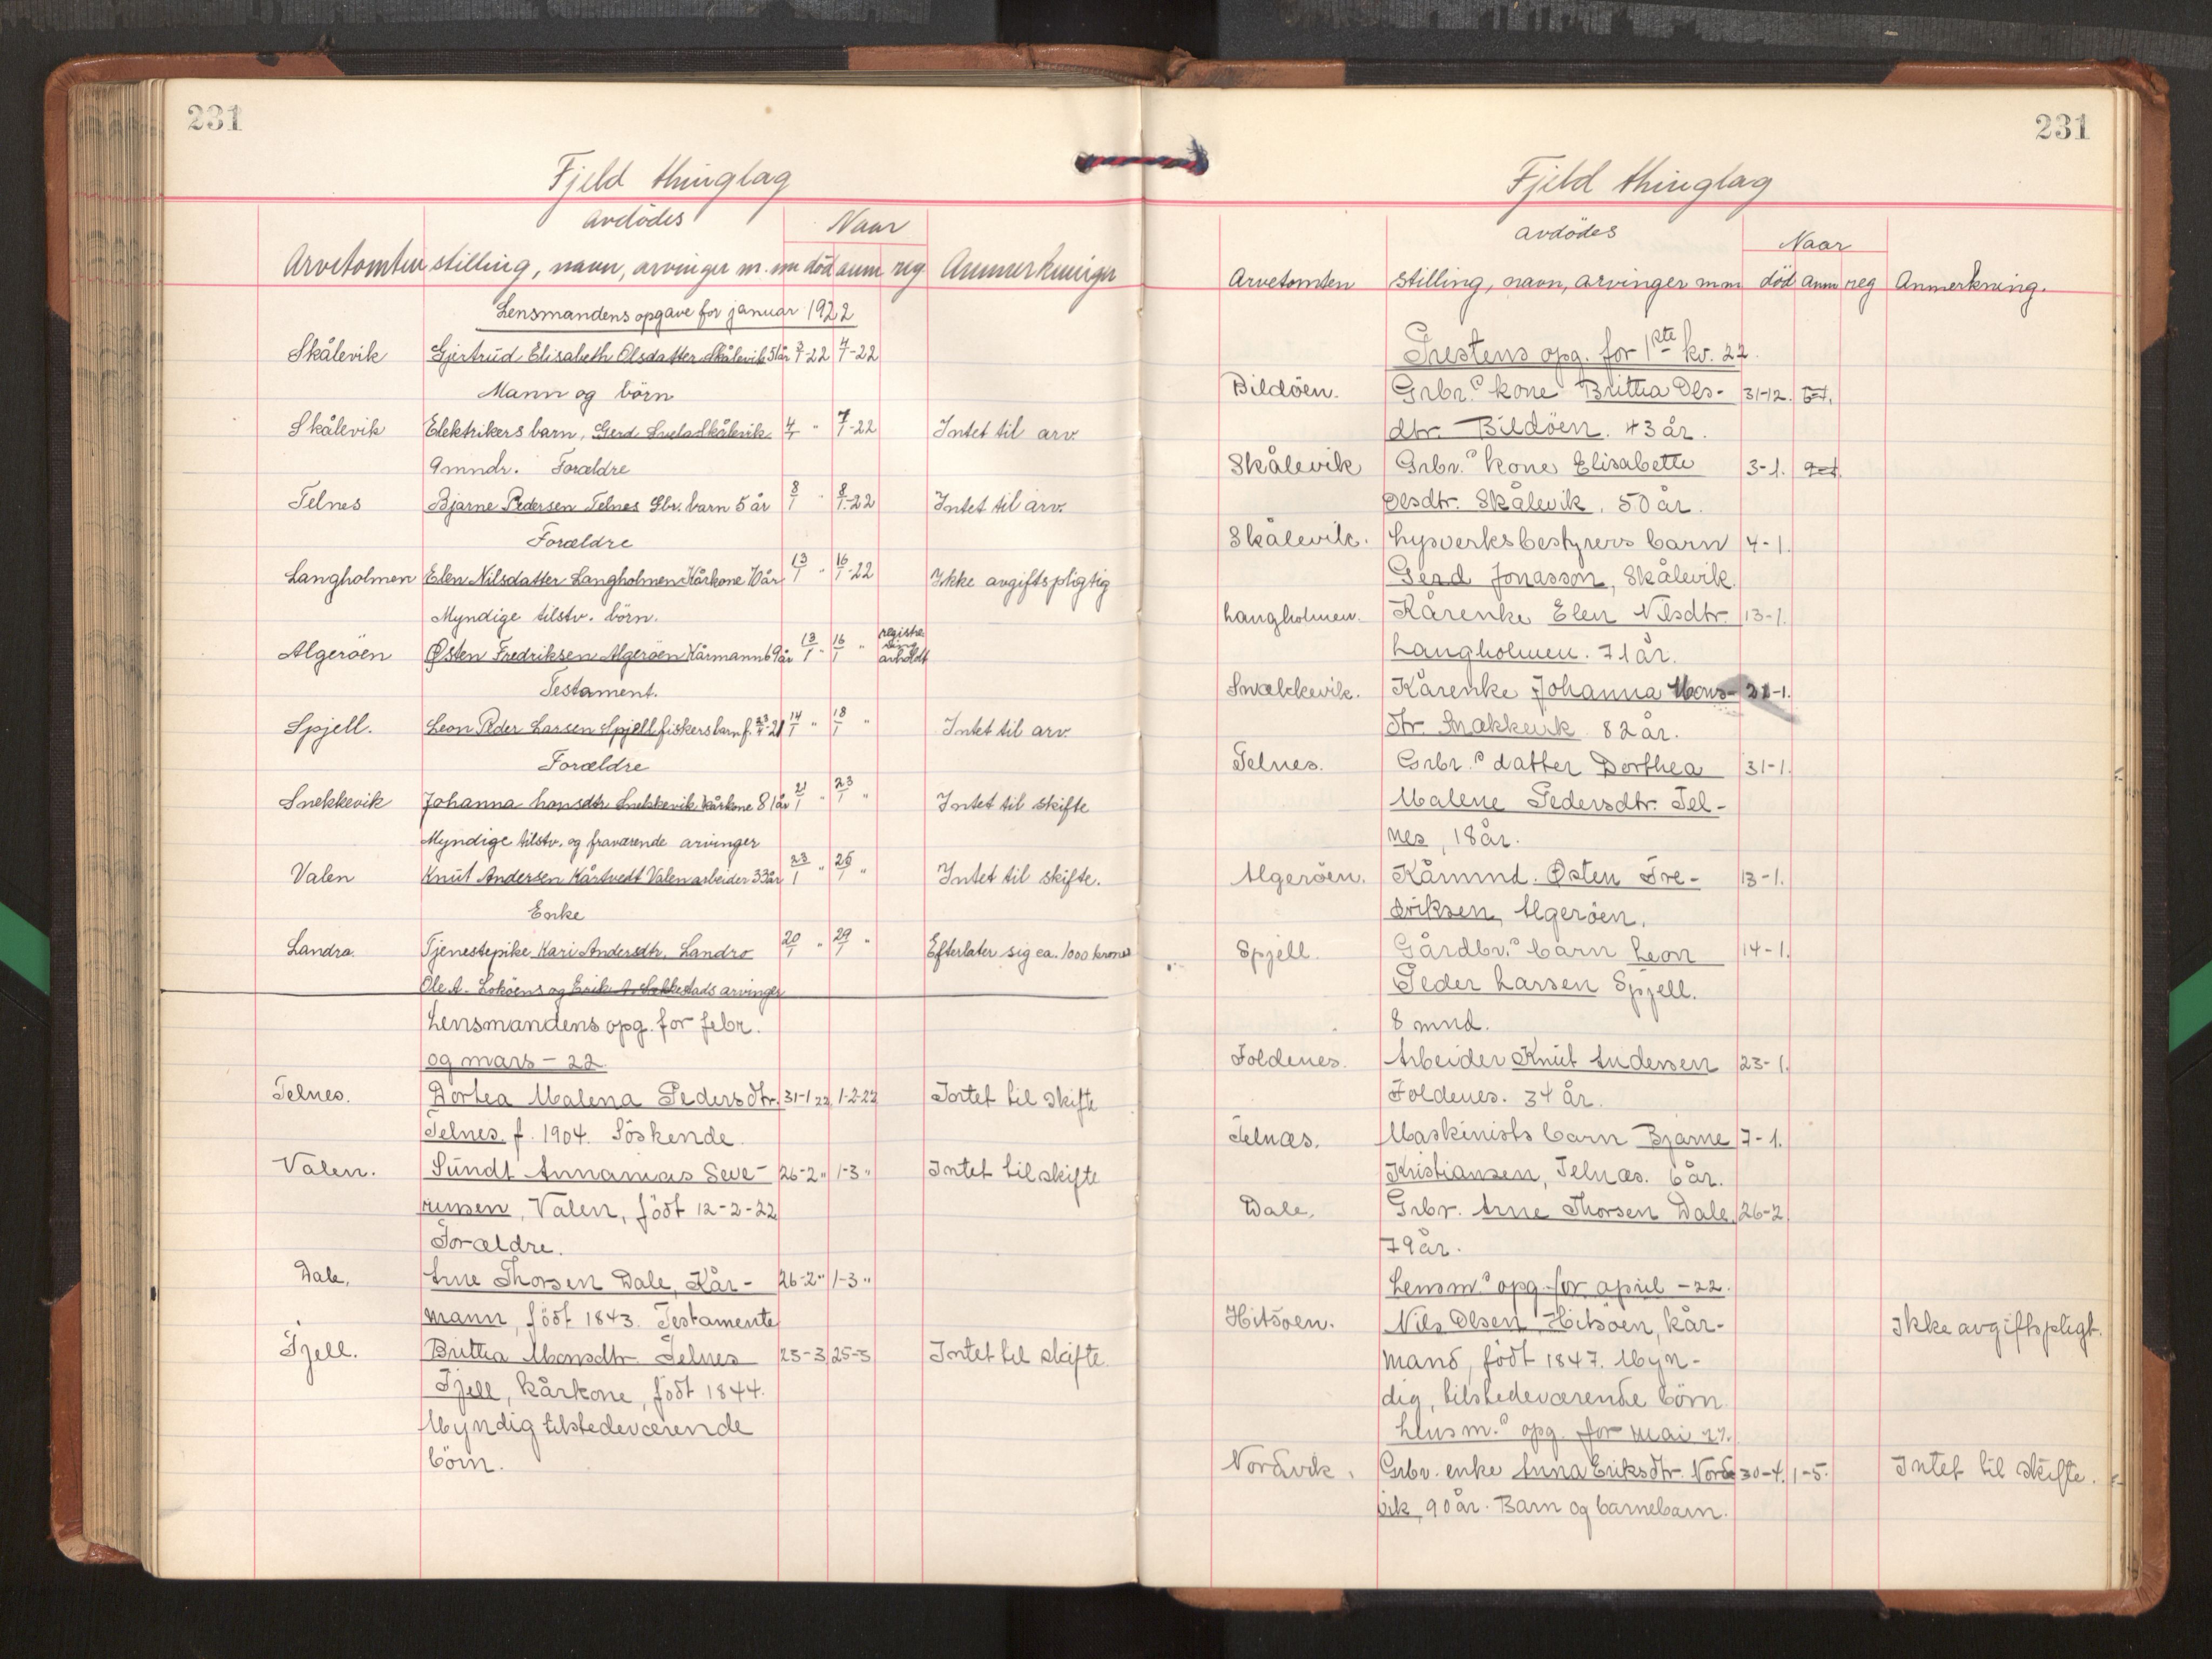 231
Fjeld thinglag
Avdödes
Naar
Arvetomten stilling, navn, arvinger m. m död anm reg Anmerkninger
Lensmandens opgave for januar 1922
Skålevik Gjertrud Elisabeth Olsdatter Skålevik 51år 3/1-22 4/1-22
Mann og börn
Skålevik Elektrikers barn, Gerd Skålevik 4/1 " 7/1-22 Intet til arv.
9mndr. Forældre
Telnes Bjarne Pedersen Telnes Gbr. barn 5 år 8/1 " 8/1-22 Intet til arv.
Forældre
Langholmen Elen Nilsdatter Langholmen Kårkone 70år 13/1 " 16/1-22 Ikke avgiftspligtig
Myndige tilstv. börn.
Algeröen Østen Fredriksen Algeröen Kårmann 69år 13/1 " 16/1 " registrering avholdt
Testament.
Spjell. Leon Peder Larsen Spjell fiskers barn f. 23/4-21 14/1 " 18/1 " Intet til arv.
Forældre
Snekkevik Johanna Monsdtr Snekkevik kårkone 81år 21/1 " 23/1 " Intet til skifte
Myndige tilstv. og fraværende arvinger
Valen Knut Andersen Kårtvedt Valen arbeider 33år 23/1 " 25/1 " Intet til skifte.
Enke
Landro Tjenestepike Kari Andersdtr. Landro 20/1 " 29/1 " Efterlater sig ca. 1000 kroner
Ole A. Loköens og Erik A. Sekkestads arvinger
Lensmandens opg. for febr.
og mars - 22.
Telnes. Dortea Malena Pedersdtr. 31-1 22 1-2-22 Intet til skifte
Telnes, f. 1904. Söskende.
Valen. Sundt Annanias Seve- 26-2 " 1-3 " Intet til skifte
rinsen, Valen, födt 12-2-22
Forældre.
Dale. Arne Thorsen Dale, Kår- 26-2 " 1-3 "
mann, födt 1843. Testamente
Fjell. Brittta Monsdtr. Telnes 23-3 25-3 Intet til skifte.
Fjell, kårkone, födt 1844.
Myndig tilstedeværende
börn.
231
Fjeld thinglag
avdödes
Naar
Arvetomten stilling, navn, arvinger m m död anm reg Anmerkning.
Prestens opg. for 1ste kv. 22.
Bildöen. Grbr.s kone Brittta Ols- 31-12. 6-1.
dtr. Bildöen. 43 år.
Skålevik Grbr.s kone Elisabette 3-1. 9-1.
Olsdtr. Skålevik, 50 år.
Skålevik. Lysverksbestyrers barn 4-1.
Gerd Jonasson, Skålevik.
Langholmen. Kårenke Elen Nilsdtr. 13-1.
Langholmen. 71 år.
Snækkevik. Kårenke Johanna Mons- 21-1.
dtr. Snækkevik. 82 år.
Telnes. Grbr.s datter Dorthea 31-1.
Malene Pedersdtr. Tel-
nes, 18 år.
Algeröen. Kårmnd. Østen Fre- 13-1.
driksen, Algeröen.
Spjell. Gårdbr.s barn Leon 14-1.
Peder Larsen Spjell.
8 mnd.
Foldenes. Arbeider Knut Andersen 23-1.
Foldenes. 34 år.
Telnæs. Maskinists barn Bjarne 7-1.
Kristiansen, Telnæs. 6 år.
Dale. Grbr. Arne Thorsen Dale, 26-2
79 år.
Lensm.s opg. for april - 22.
Hitsöen. Nils Olsen Hitsöen, kår- Ikke avgiftspligt.
mand, födt 1847. Myn-
dig, tilstedeværende börn.
Lensm.s opg. for mai 22.
Nordvik. Grbr. enke Anna Eriksdtr. Nord- 30-4. 1-5. Intet til skifte.
vik, 90 år. Barn og barnebarn.